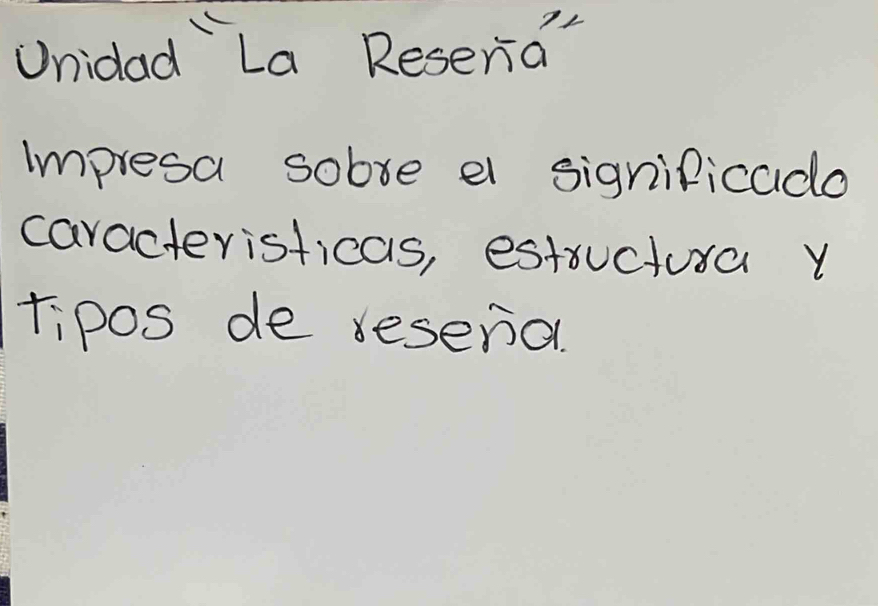 Unidad "La Reseña"
Impresa sobre el significado
caracteristicas, estructura y
Tipos de reseña.